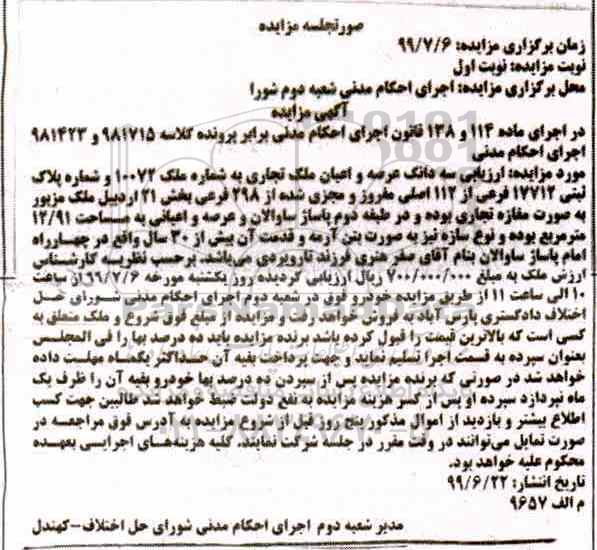 صورتجلسه مزایده
زمان برگزاری مزایده: ۹۹/۷/۶
نوبت مزایده: نوبت اول
محل برگزاری مزایده: اجرای احکام مدنی شعبه دوم شورا
آگهی مزایده
در اجرای ماده ۱۱۴ و ۱۳۸ قانون اجرای احکام مدنی برابر پرونده کلاسه ۹۸۱۷۱۵ و ۹۸۱۴۲۳
اجرای احکام مدنی
مورد مزایده: ارزیابی سه دانگ عرصه و اعیان ملک تجاری به شماره ملک ۱۰۰۷۲ و شماره پلاک
ثبتی ۱۷۷۱۲ فرعی از ۱۱۲ اصلی مفروز و مجزی شده از ۲۹۸ فرعی بخش ۲۱ اردبیل ملک مزبور
به صورت مغازه تجاری بوده و در طبقه دوم پاساژ ساوالان و عرصه و اعیانی به مساحت ۱۲/۹۱
مترمربع بوده و نوع سازه نیز به صورت بتن آرمه و قدمت آن بیش از ۳۰ سال واقع در چهارراه
امام پاساژ ساوالان بنام آقای صفر هنری فرزند تارویردی می‌باشد. برحسب نظریه کارشناسی
ارزش ملک به مبلغ ۷۰۰/۰۰۰/۰۰۰ ریال ارزیابی گردیده روز یکشنبه مورخه ۹۹/۷/۶ از ساعت
۱۰ الی ساعت ۱۱ از طریق مزایده خودرو فوق در شعبه دوم اجرای احکام مدنی شورای حل
اختلاف دادگستری پارس آباد به فروش خواهد رفت و مزایده از مبلغ فوق شروع و ملک متعلق به
کسی است که بالاترین قیمت را قبول کرده باشد برنده مزایده باید ده درصد بها را فی المجلس
بعنوان سپرده به قسمت اجرا تسلیم نماید و جهت پرداخت بقیه آن حداکثر یکماه مهلت داده
خواهد شد در صورتی که برنده مزایده پس از سپردن ده درصد بها خودرو بقیه آن را ظرف یک
ماه نپردازد سپرده او پس از کسر هزینه مزایده به نفع دولت ضبط خواهد شد طالبین جهت کسب
اطلاع بیشتر و بازدید از اموال مذکور پنج روز قبل از شروع مزایده به آدرس فوق مراجعه در
صورت تمایل می‌توانند در وقت مقرر در جلسه شرکت نمایند. کلیه هزینه‌های اجرایی بعهده
محکوم علیه خواهد بود.
تاریخ انتشار: ۹۹/۶/۲۲
م الف ۹۶۵۷
مدیر شعبه دوم اجرای احکام مدنی شورای حل اختلاف-کهندل